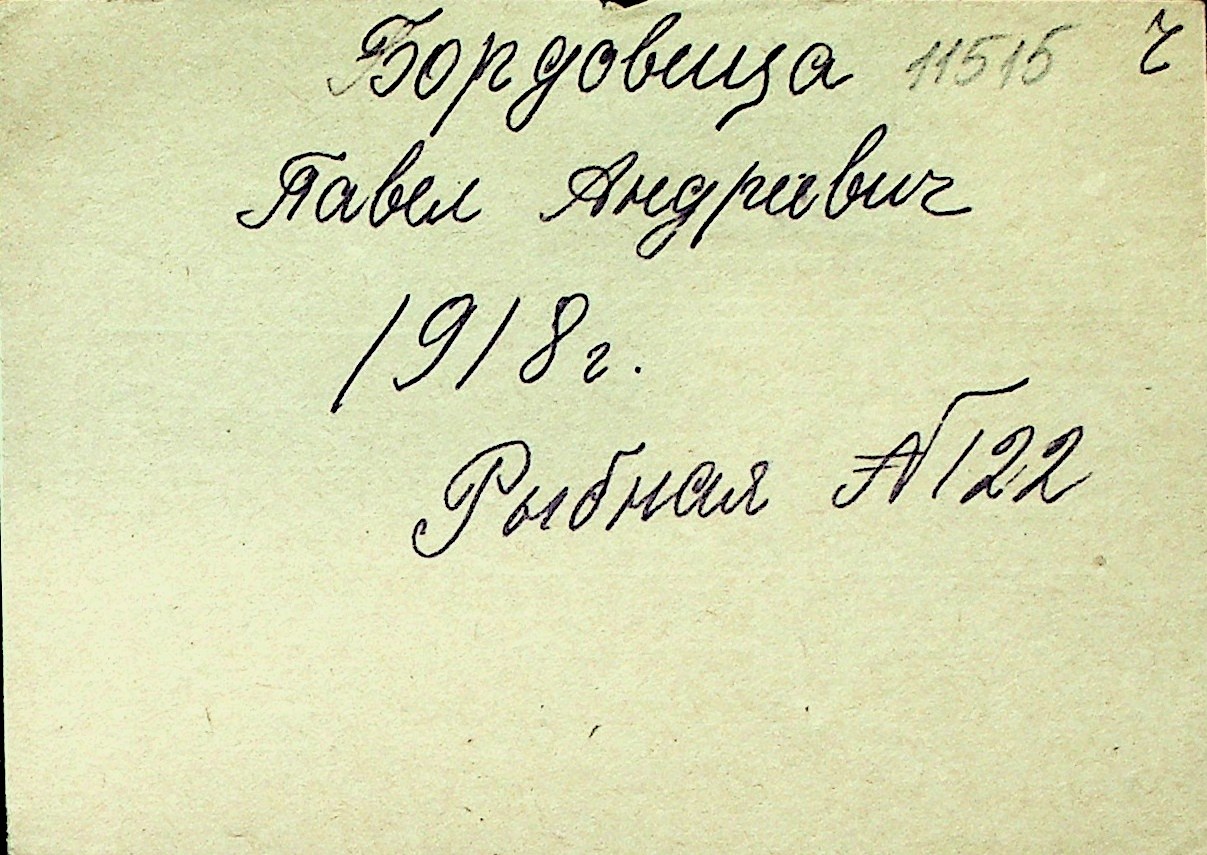 Бордовица 11515 ч
Павел Андреевич
1918 г.
Рыбная № 122